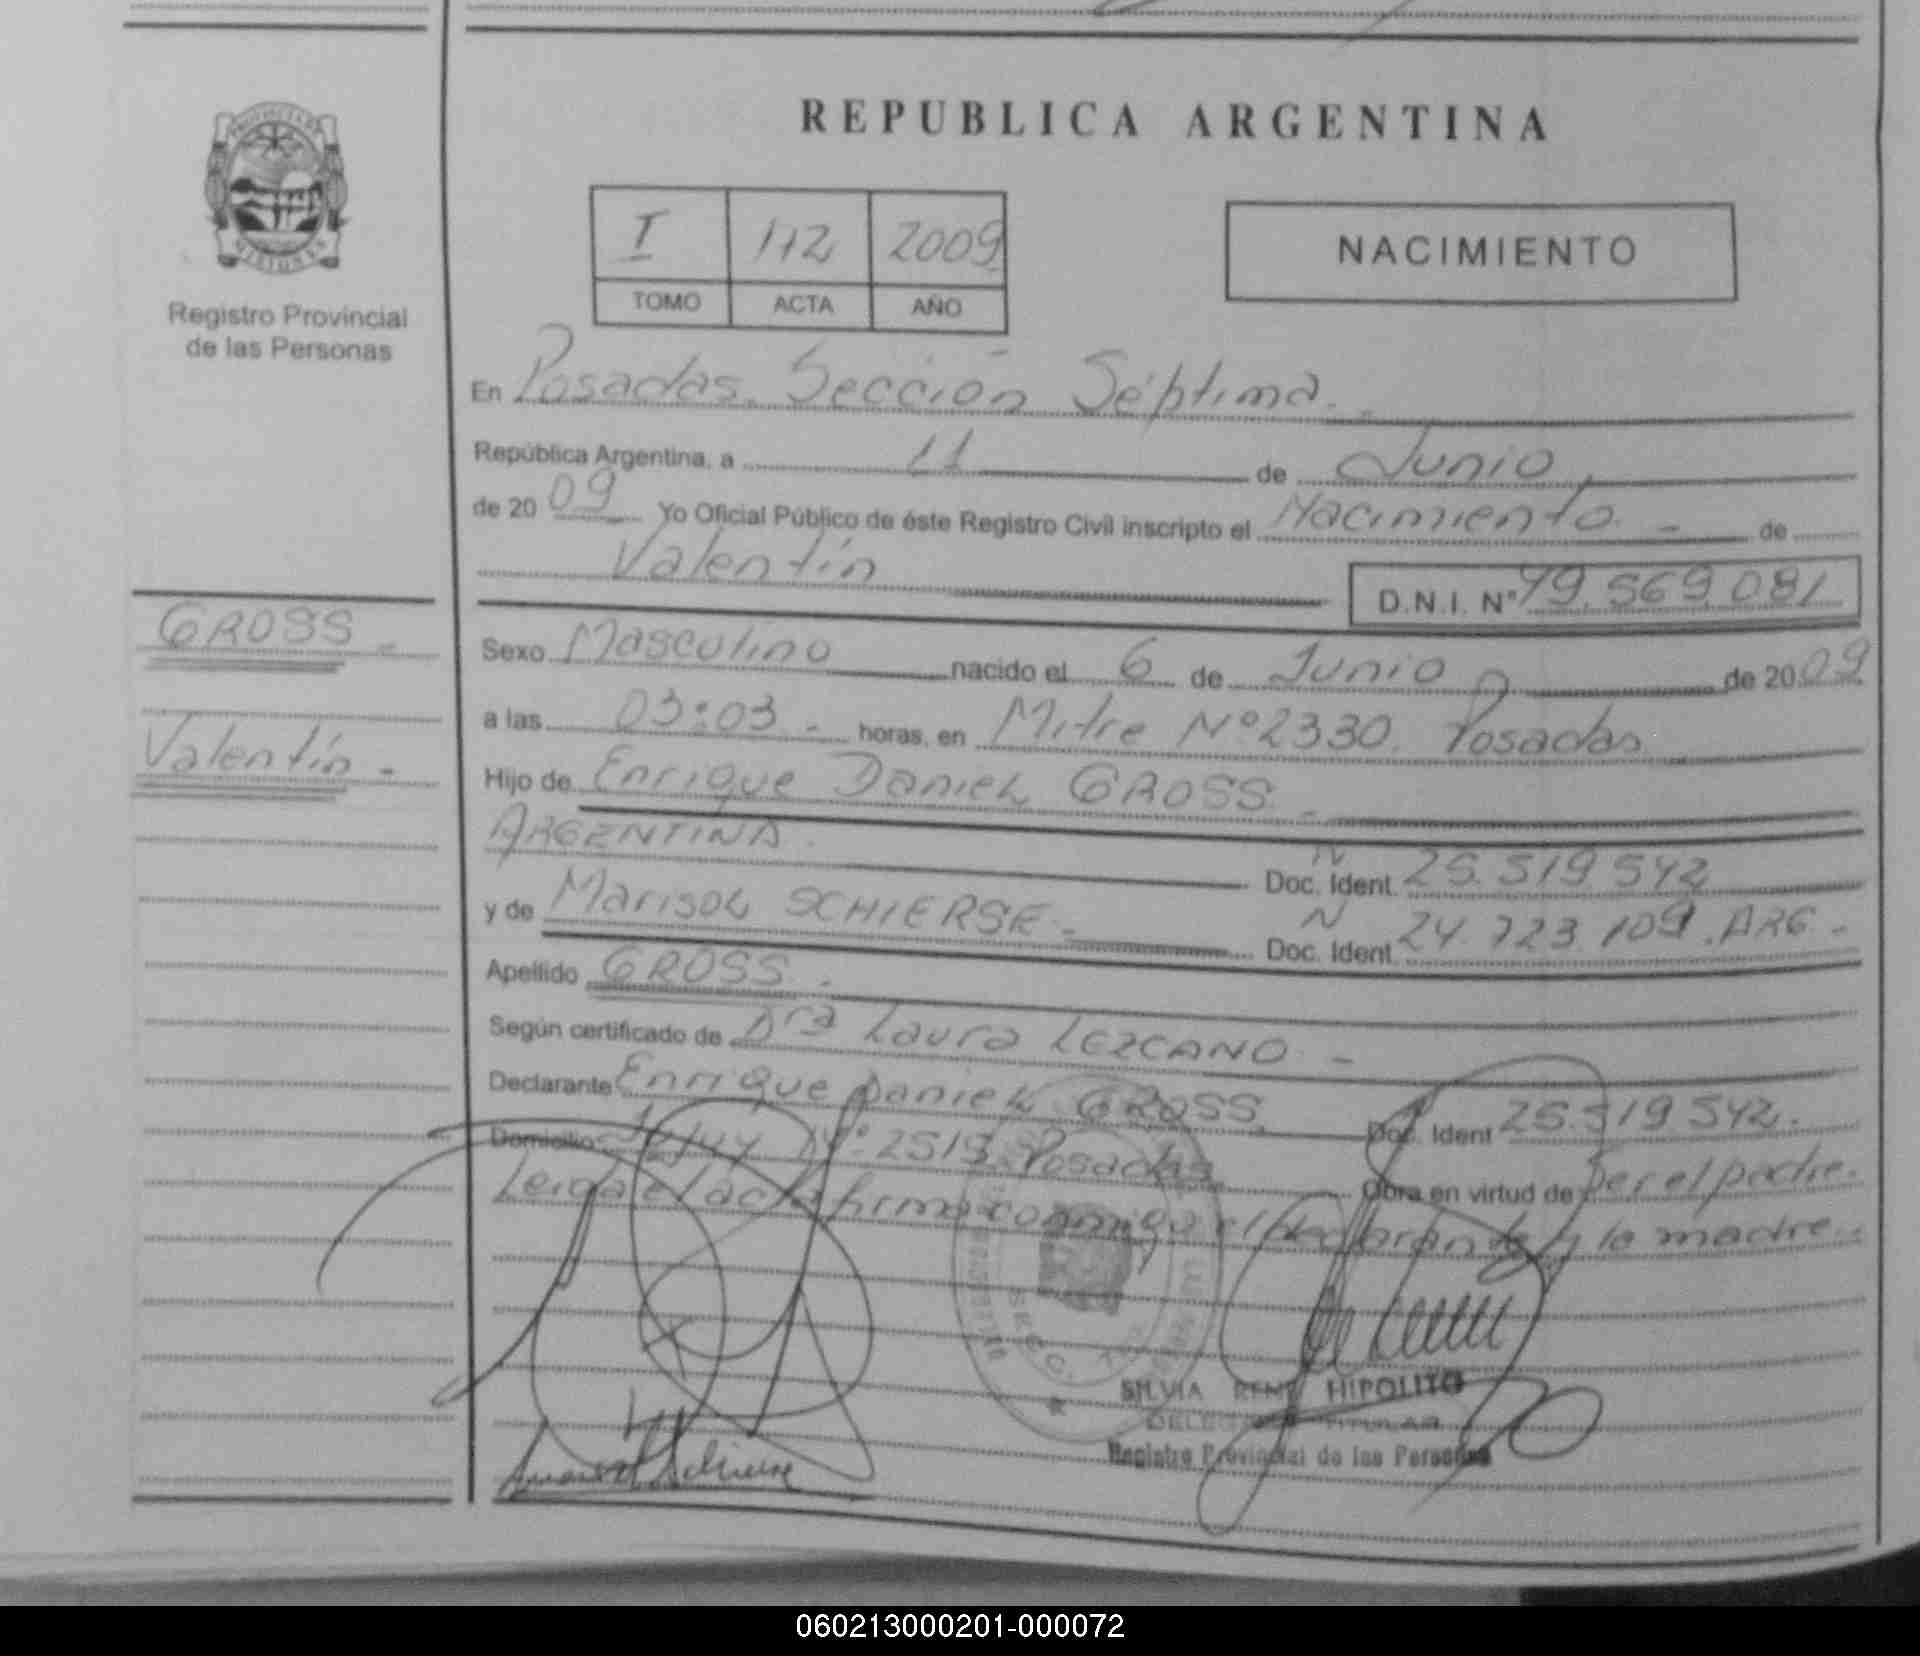 REPUBLICA ARGENTINA
PROVINCIA DE
MISIONES
Registro Provincial
de las Personas
I 112 2009
TOMO ACTA AÑO
NACIMIENTO
En Posadas. Sección Séptima.
República Argentina, a 11 de Junio,
de 2009 Yo Oficial Público de éste Registro Civil inscripto el Nacimiento - de
Valentín D.N.I. Nº 49.569.081
GROSS -
Valentín -
Sexo Masculino nacido el 6 de Junio de 2009
a las 03:03 - horas, en Mitre Nº 2330. Posadas
Hijo de Enrique Daniel GROSS -
ARGENTINA. Doc. Ident. N 25.519.542
y de Marisol SCHIERSE - Doc. Ident. N 24.723.109. ARG. -
Apellido GROSS -
Según certificado de Dra Laura LEZCANO -
Declarante Enrique Daniel GROSS Doc. Ident 25.519.542.
Domicilio Jujuy Nº 2519 Posadas Obra en virtud de ser el padre.
Leida el acta firma conmigo el declarante y la madre.
SILVIA RENE HIPOLITO
DELEGADA TITULAR
Registro Provincial de las Personas
060213000201-000072